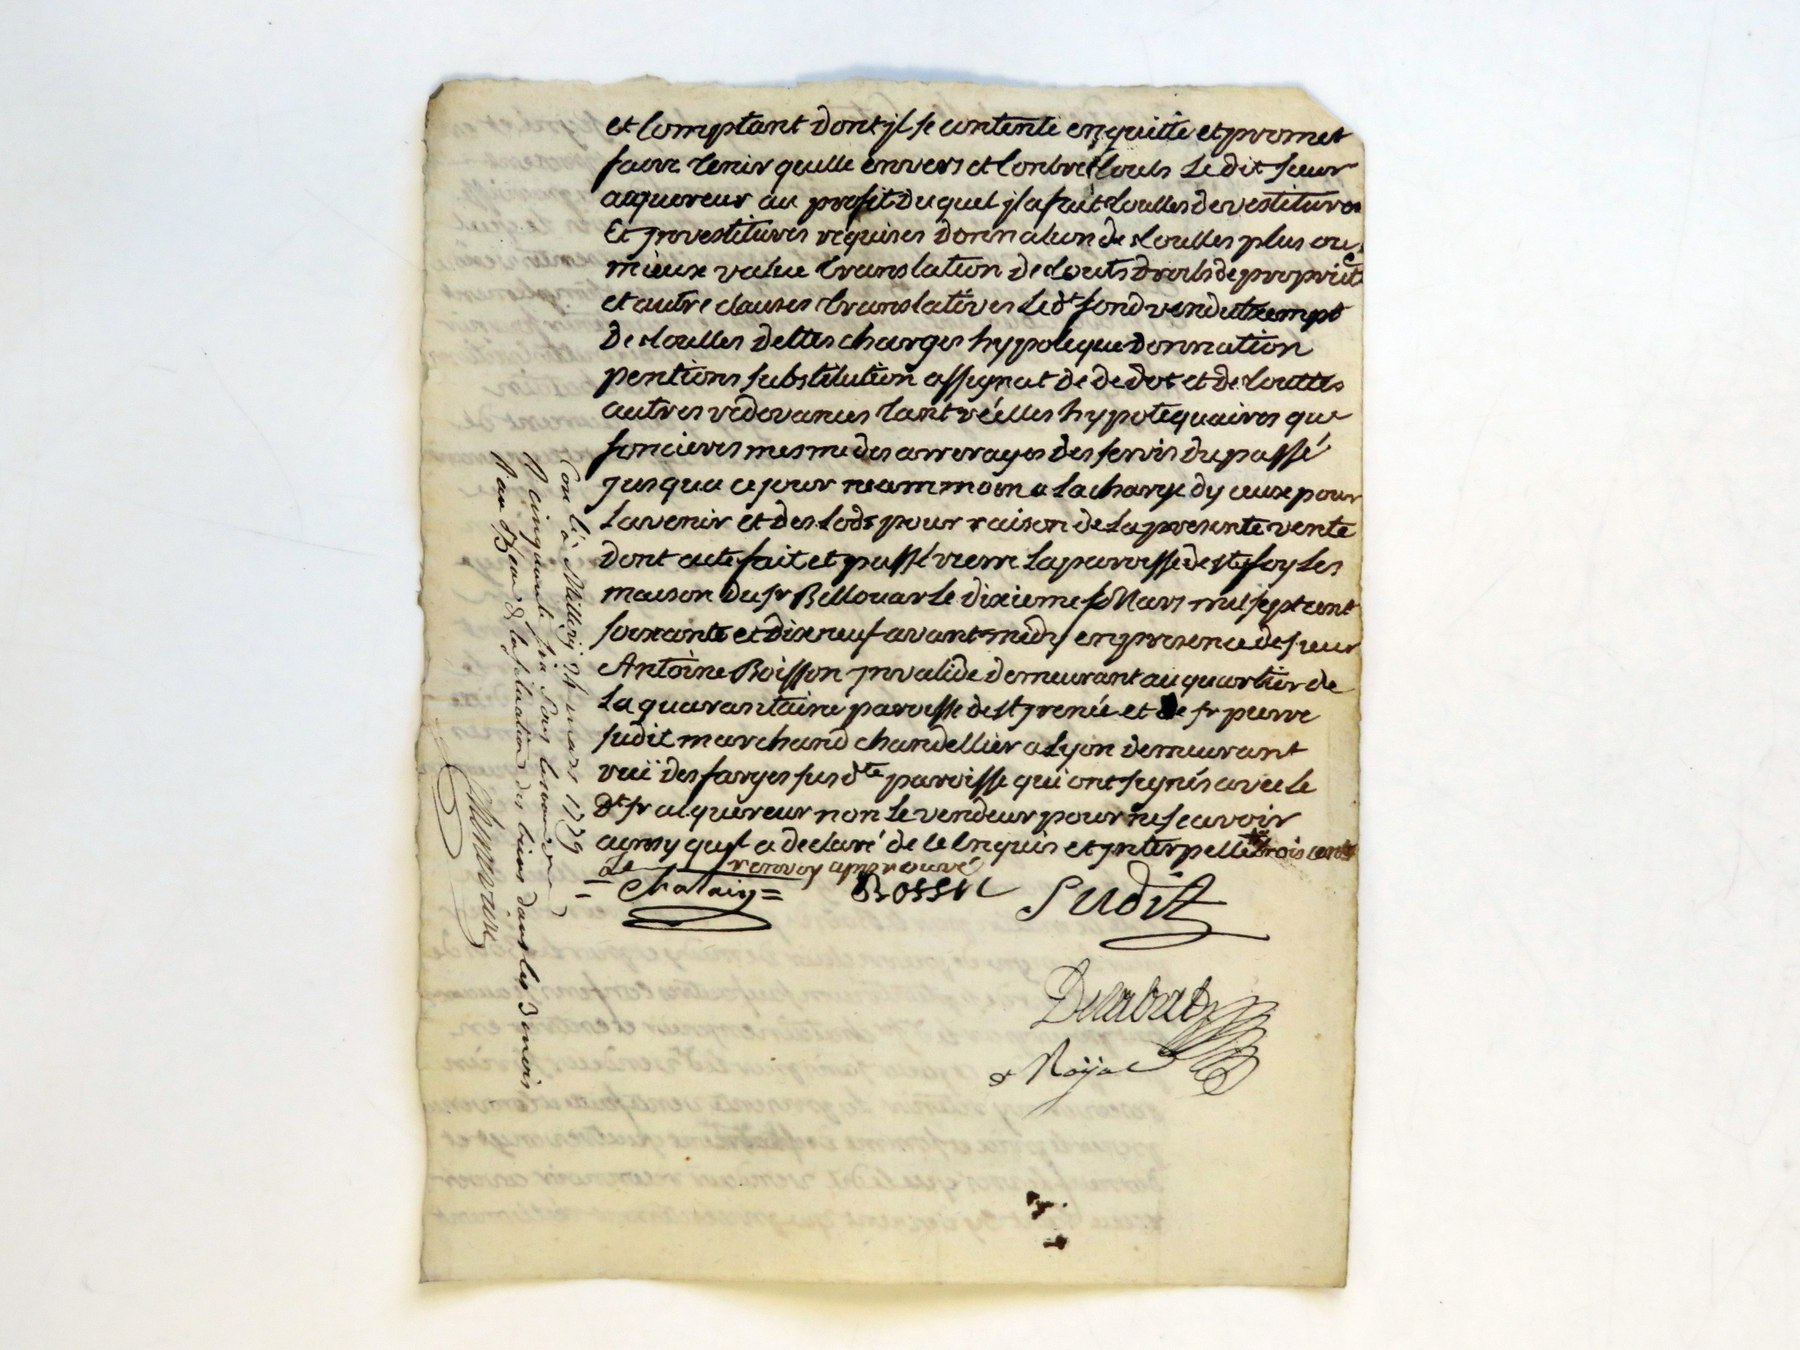 et Comptant Dont jl se contente en quitte et promet
faire tenir quitte envers et Contre touts Le dit sieur
acquereur au profit Duquel jl a fait touttes devestitures
Et jnvestitures requises Donnation de touttes plus ou
mieux value translation de touts Droits de proprieté
et autre clauses translatives Le dt fond vendu Exempt
De touttes dettes charges hypoteque Donnation
pentions substitution assignat de de dot et de touttes
autres redevances tant réélles hypotequaires que
foncieres mesme des arrerayes des servis du passé
jusqua ce jour neammoin a La charge dyceux pour
Lavenir et des Lods pour raison de La presente vente
Dont acte fait et passé La paroisse de ste foy Les
maison du sr Bellouar Le dixieme Mars mil sept cent
soixante et Dixneuf avant midy en presence de sieur
Antoine Boisson jnvalide demeurant au quartier de
La quarantaine paroisse de st jrenée et de sr pierre
sudit marchand chandellier a Lyon demeurant
ruë des farges susdte paroisse qui ont signés avec le
Dt sr acquereur non Le vendeur pour ne scavoir
ainsy quil a declaré de ce Enquis et jnterpellé trois cents
Le renvoy approuvé
= Chalain = Sudit
Cont.lé à Millery 24 mars 1779
R cinquante six sous